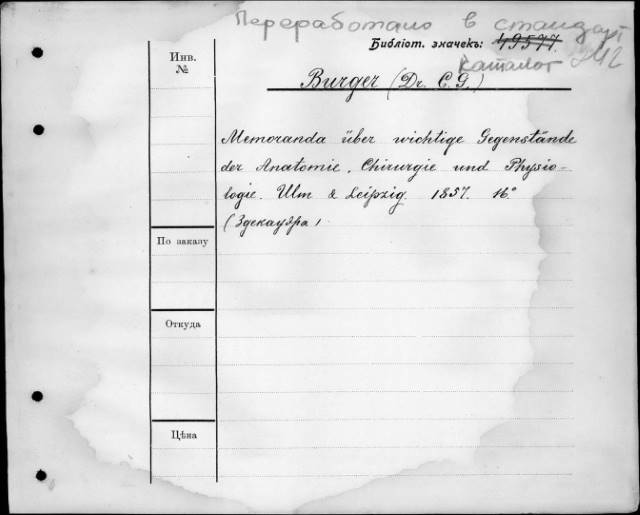 Переработано в стандарт
Библіот. значекъ: 49577.
каталог
Инв.
№
Burger (Dr. C. G.)
Memoranda über wichtige Gegenstände
der Anatomie, Chirurgie und Physio-
logie. Ulm & Leipzig. 1857. 16°
По заказу
Откуда
Цѣна